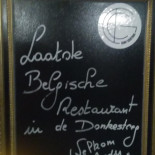 Laatste
Belgische
Restaurant
in de Donkesteeg
Welkom